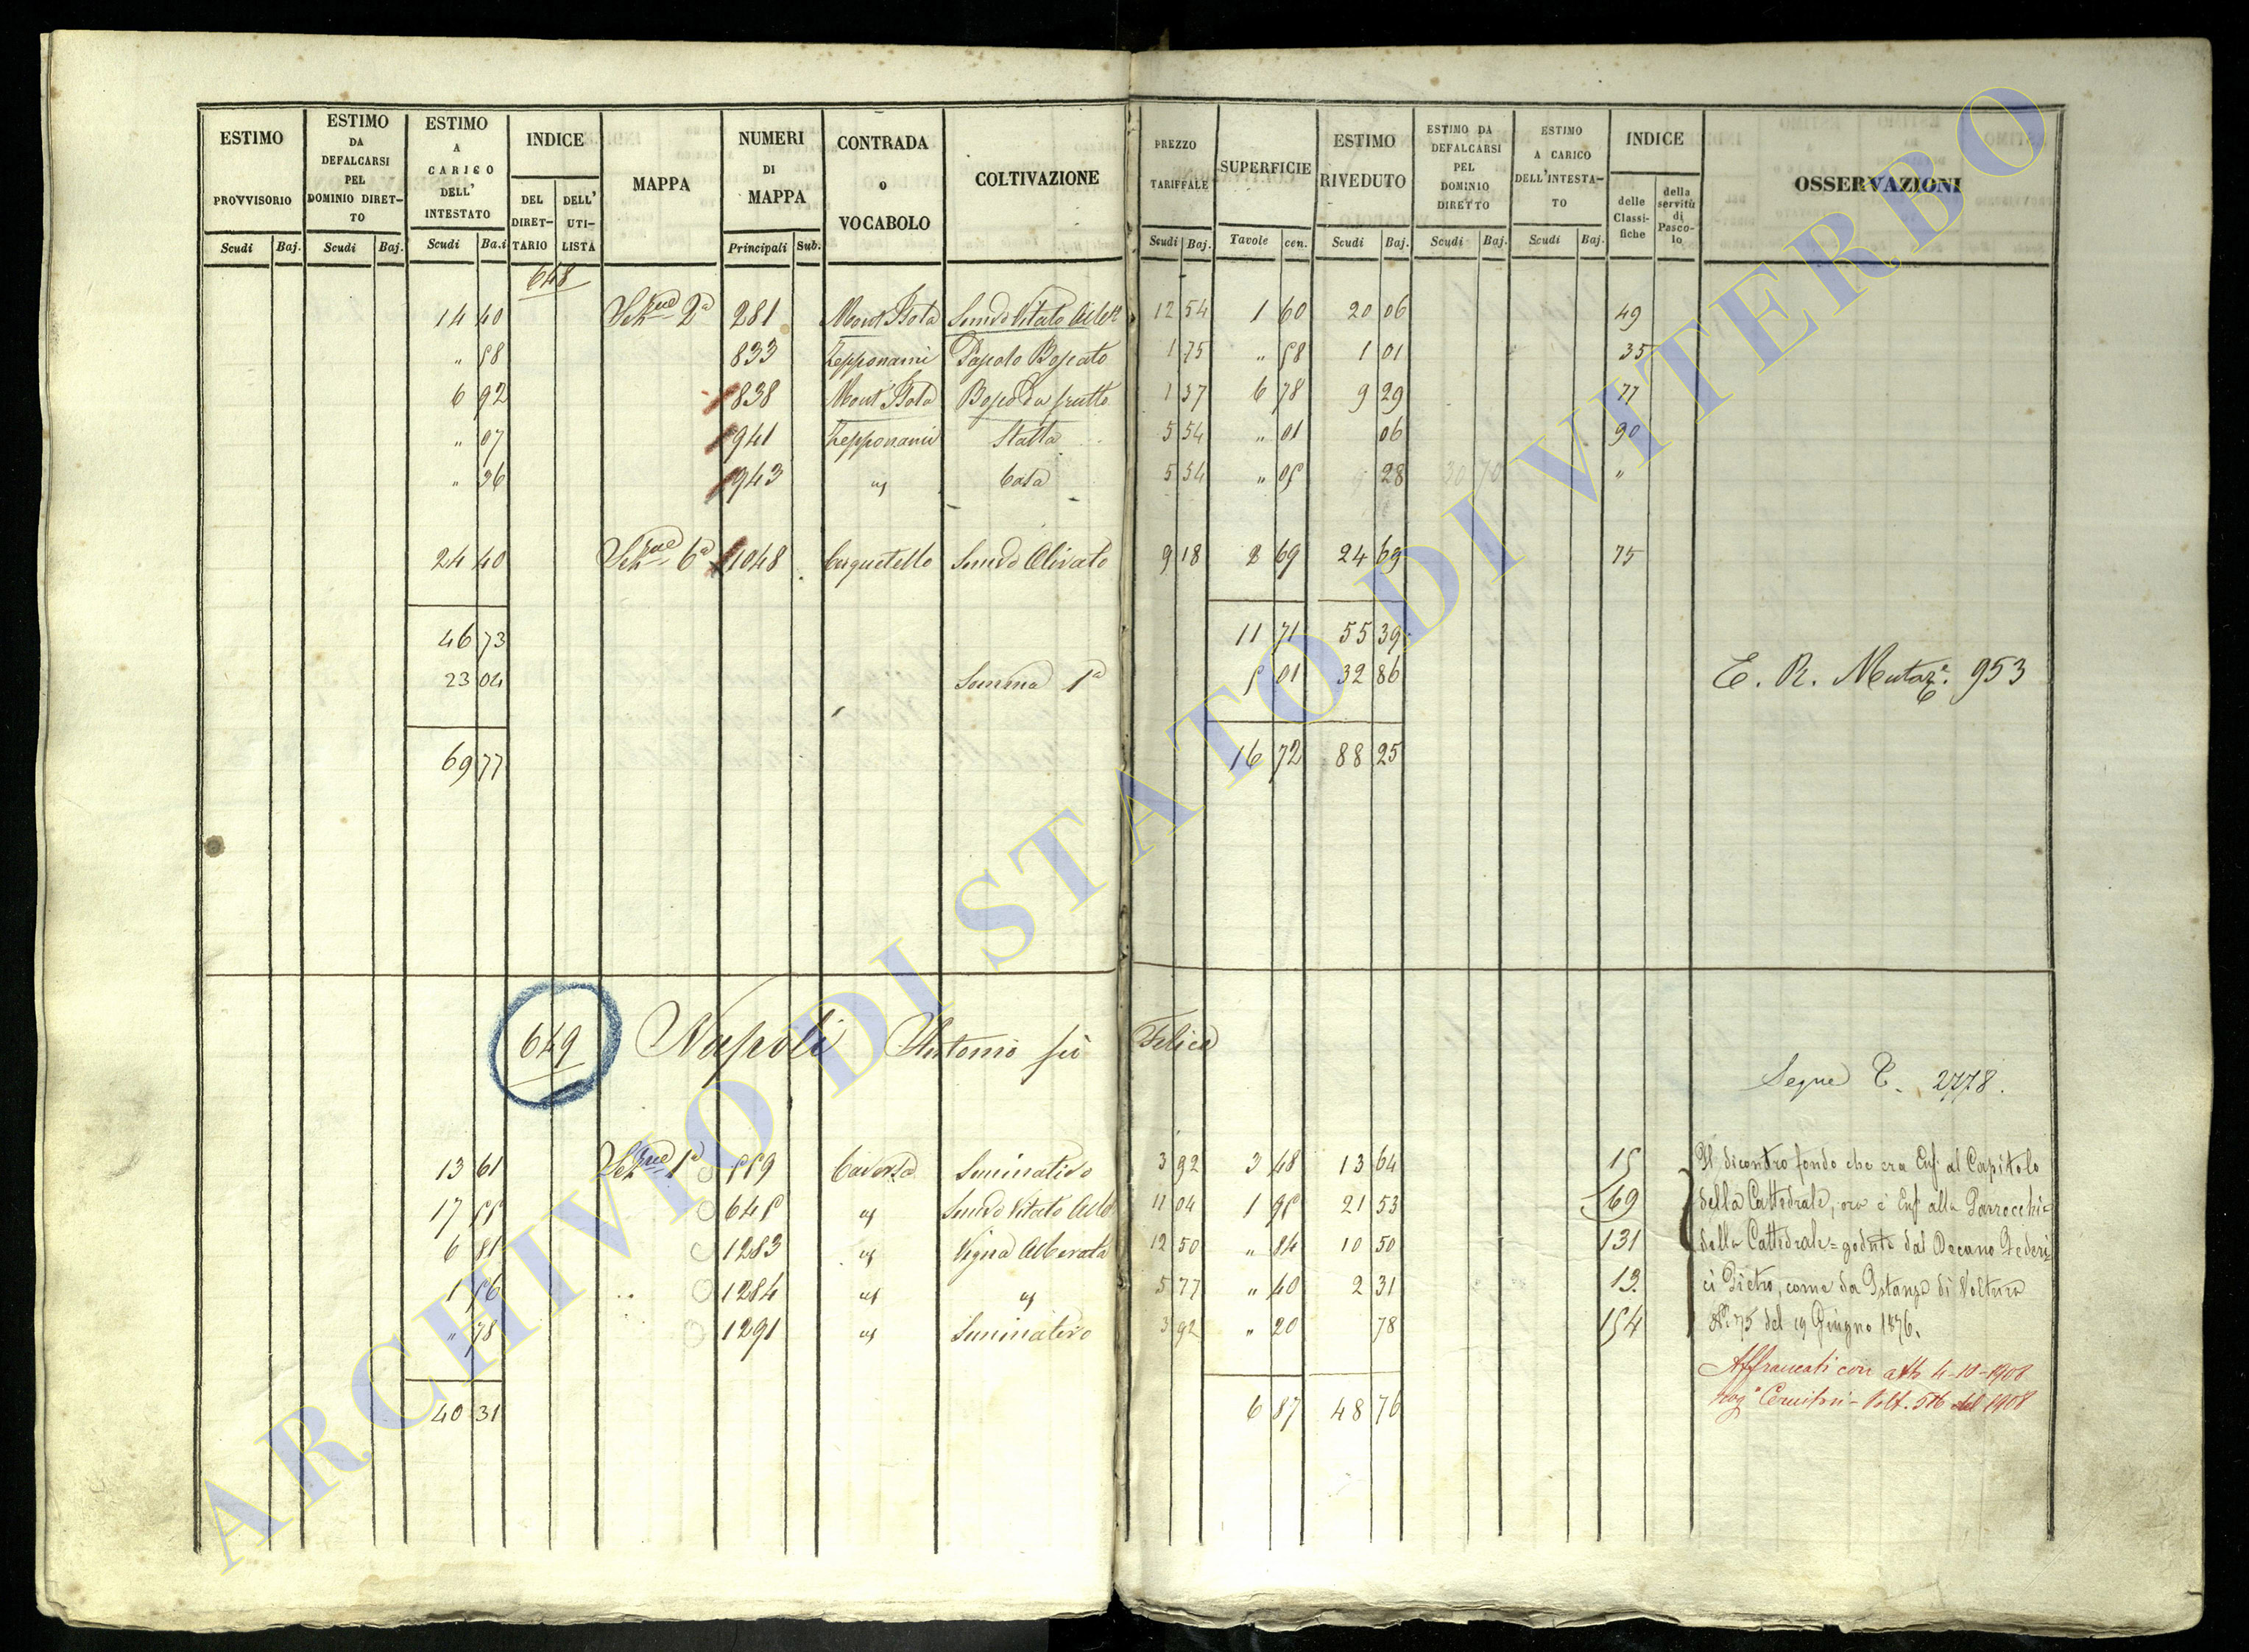 ESTIMO PROVVISORIO Scudi Baj.
ESTIMO DA DEFALCARSI PEL DOMINIO DIRET-TO Scudi Baj.
ESTIMO A CARICO DELL' INTESTATO Scudi Ba.i
INDICE DEL DIRET-TARIO DELL' UTI-LISTA
MAPPA
NUMERI DI MAPPA Principali Sub.
CONTRADA o VOCABOLO
COLTIVAZIONE
PREZZO TARIFFALE Scudi Baj.
SUPERFICIE Tavole cen.
ESTIMO RIVEDUTO Scudi Baj.
ESTIMO DA DEFALCARSI PEL DOMINIO DIRETTO Scudi Baj.
ESTIMO A CARICO DELL'INTESTA-TO Scudi Baj.
INDICE delle Classi-fiche della servitù di Pasco-lo
OSSERVAZIONI
648
14 40 Sez.ne 2a 281 Semvo Vitato Albto 12 54 1 60 20 06 49
" 58 833 Zepponami Pascolo Boscato 1 75 " 58 1 01 35
6 92 838 Bosco da frutto 1 37 6 78 9 29 77
" 07 941 Zepponami Stalla 5 54 " 01 06 90
" 36 943 id Casa 5 54 " 05 28 "
24 40 Sez.ne 6a 1048 Cerquetello Semvo Olivato 9 18 2 69 24 69 75
46 73 11 71 55 39
23 04 Somma 1a 5 01 32 86 E. R. Mutaz.e 953
69 77 16 72 88 25
649 Napoli Antonio fù Felice
Segue C. 2778.
13 61 Sez.ne 1a 559 Caversa Seminativo 3 92 3 48 13 64 15 Il dicontro fondo che era Enf. al Capitolo
17 55 645 id Semvo Vitato Albo 11 04 1 95 21 53 69 della Cattedrale, ora è Enf. alla Parrocchi=
6 81 1283 id Vigna Alberata 12 50 " 84 10 50 131 della Cattedrale = goduto dal Decano Federi=
1 56 1284 id id 5 77 " 40 2 31 13. ci Pietro, come da Istanza di Voltura
" 78 1291 id Seminativo 3 92 " 20 78 154 No. 75 del 19 Giugno 1876.
Affrancati con atto 4-10-1908
40 31 6 87 48 76 rog.o - Volt. 516 del 1908
ARCHIVIO DI STATO DI VITERBO